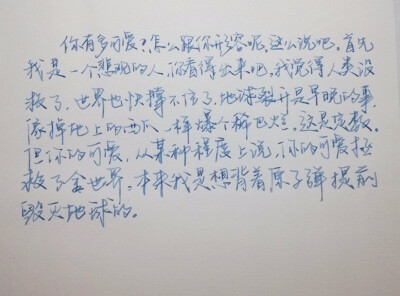 你有多可爱?怎么跟你形容呢,这么说吧。首先
我是一个悲观的人,你看得出来吧,我觉得人类没
救了,世界也快撑不住了,地球裂开是早晚的事,
像掉地上的西瓜一样爆个稀巴烂,这是定数。
但你的可爱,从某种程度上说,你的可爱拯
救了全世界。本来我是想背着原子弹提前
毁灭地球的。